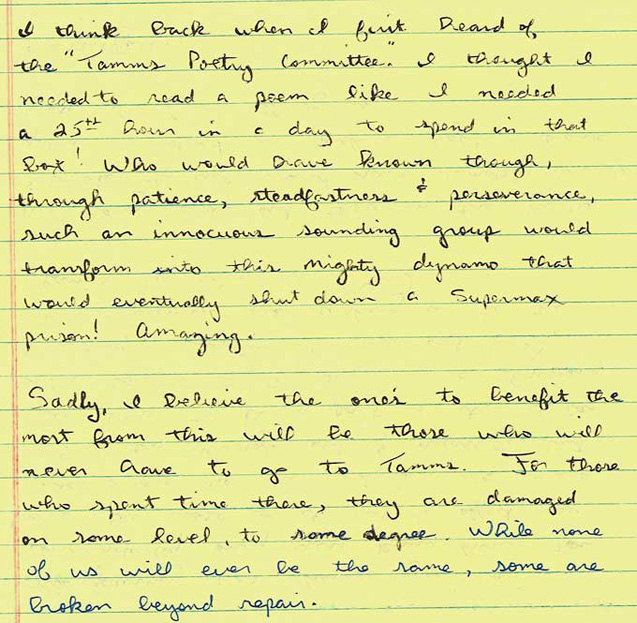 I think back when I first heard of
the "Tamms Poetry Committee." I thought I
needed to read a poem like I needed
a 25th hour in a day to spend in that
box! Who would have known though,
through patience, steadfastness & perseverance,
such an innocuous sounding group would
transform into this mighty dynamo that
would eventually shut down a Supermax
prison! Amazing.
Sadly, I believe the one's to benefit the
most from this will be those who will
never have to go to Tamms. For those
who spent time there, they are damaged
on some level, to some degree. While none
of us will ever be the same, some are
broken beyond repair.